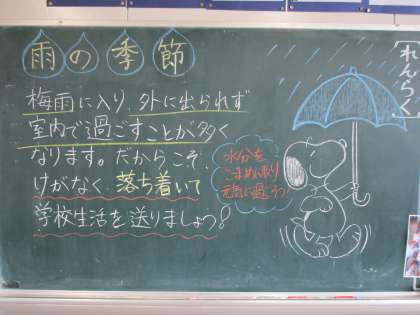 雨の季節
梅雨に入り、外に出られず
室内で過ごすことが多く
なります。だからこそ、
けがなく、落ち着いて
学校生活を送りましょう!
水分を
こまめに取り
元気に過ごそう!
れんらく